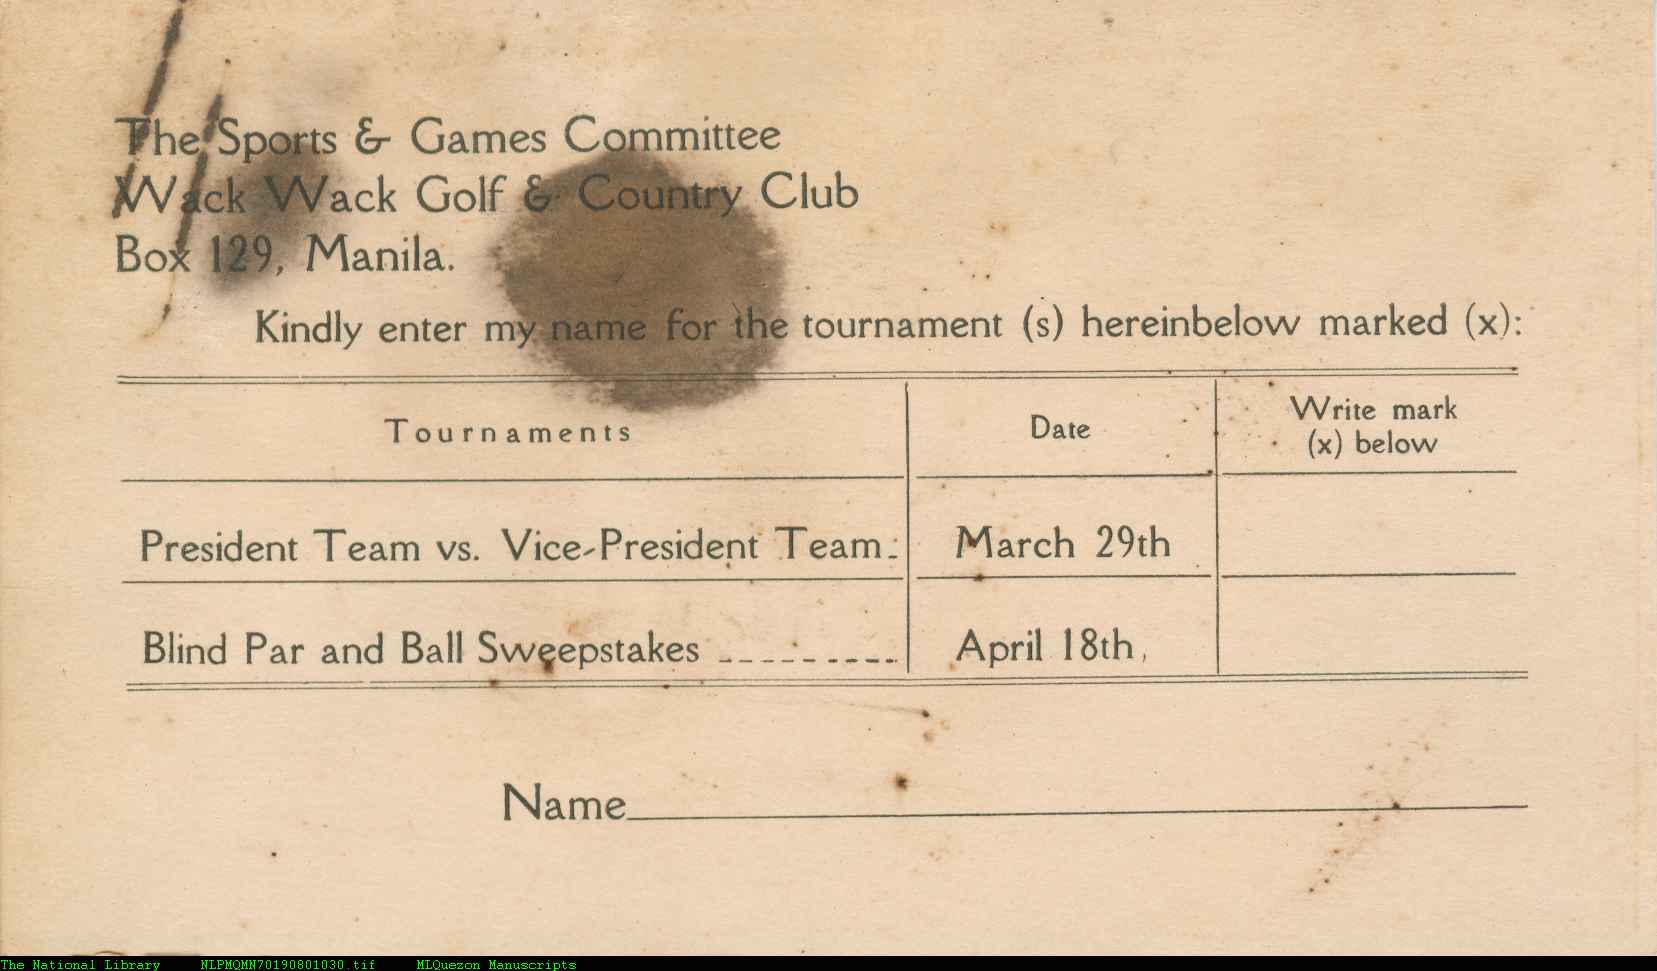 The Sports & Games Committee
Wack Wack Golf & Country Club
Box 129, Manila.
Kindly enter my name for the tournament (s) hereinbelow marked (x):
Tournaments Date Write mark
(x) below
President Team vs. Vice-President Team: March 29th
Blind Par and Ball Sweepstakes __________ April 18th,
Name
The National Library NLPMQMN70190801030.tif MLQuezon Manuscripts